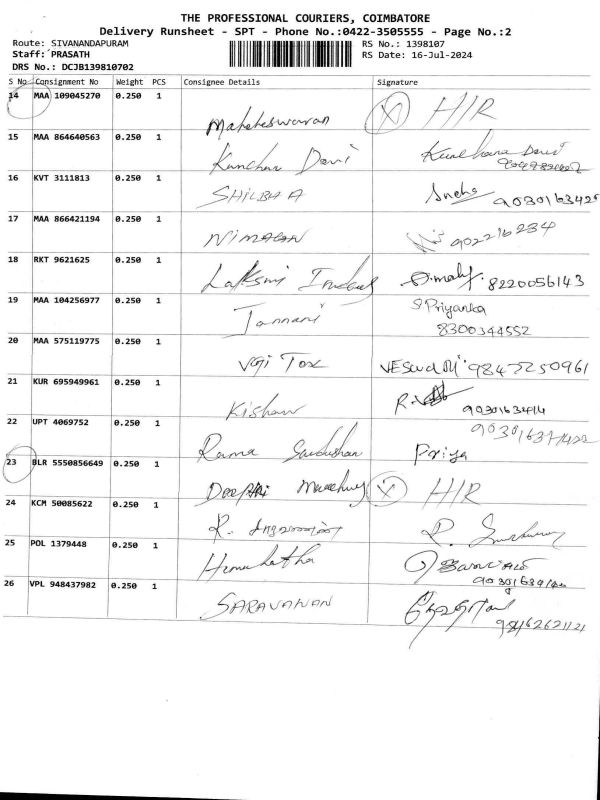 THE PROFESSIONAL COURIERS, COIMBATORE
Delivery Runsheet - SPT - Phone No.:0422-3505555 - Page No.:2
Route: SIVANANDAPURAM
RS No.: 1398107
Staff: PRASATH
RS Date: 16-Jul-2024
DRS No.: DCJB139810702
S No Consignment No Weight PCS Consignee Details Signature
14 MAA 109045270 0.250 1
Maheheswaran X H/R
15 MAA 864640563 0.250 1
Kanchan Davi
16 KVT 3111813 0.250 1
SHILBHA Sneha
17 MAA 866421194 0.250 1
NIMALAN 902216234
18 RKT 9621625 0.250 1
Lakksmi 8220056143
19 MAA 104256977 0.250 1
Jannani S Priyanka
8300344552
20 MAA 575119775 0.250 1
Vgi Tex
21 KUR 695949961 0.250 1
Kishan
22 UPT 4069752 0.250 1
Rama Priya
23 BLR 5550856649 0.250 1
X H/R
24 KCM 50085622 0.250 1
R.
25 POL 1379448 0.250 1
26 VPL 948437982 0.250 1
SARAVANAN